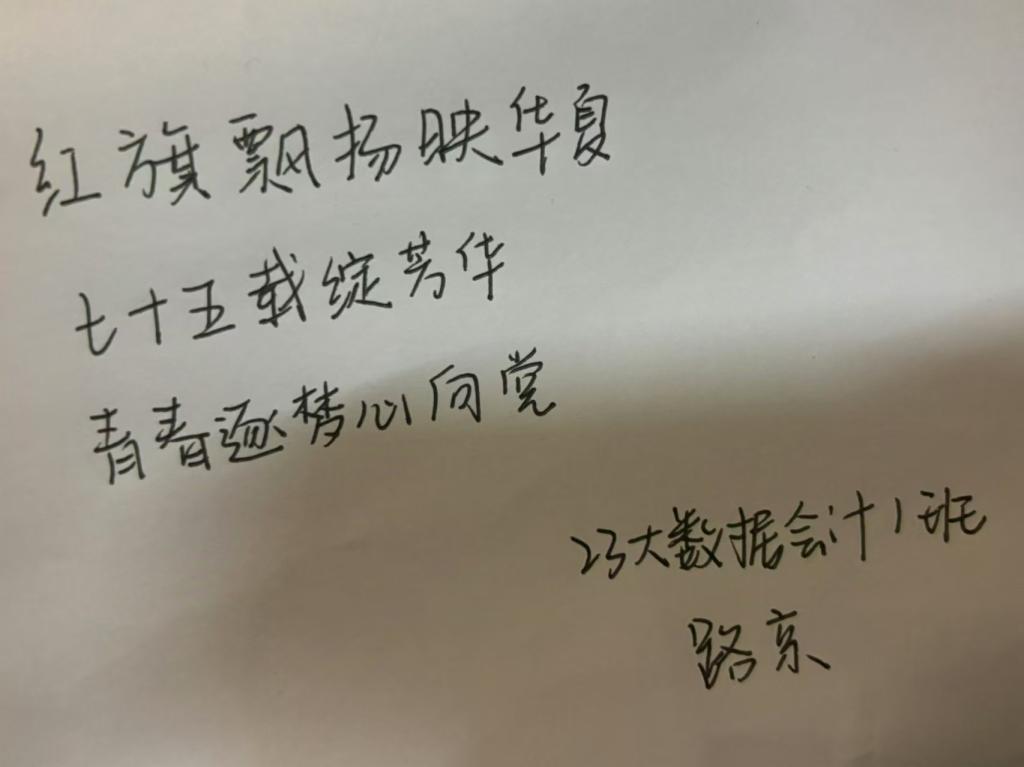 红旗飘扬映华夏
七十五载绽芳华
青春逐梦心向党
23大数据会计1班
路京